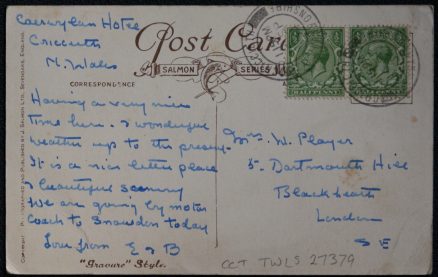 Caerwylan Hotel
Criccieth
N. Wales
Post Card
SALMON SERIES
CORRESPONDENCE
Having a very nice
time here & wonderful
weather up to the present
It is a nice little place
& beautiful scenery
We are going by motor
coach to Snowdon today
Love from E & B
"Gravure" Style.
HALFPENNY
HALFPENNY
Mrs. W. Player
5. Dartmouth Hill
Blackheath
London
S E
CCT TWLS 27379